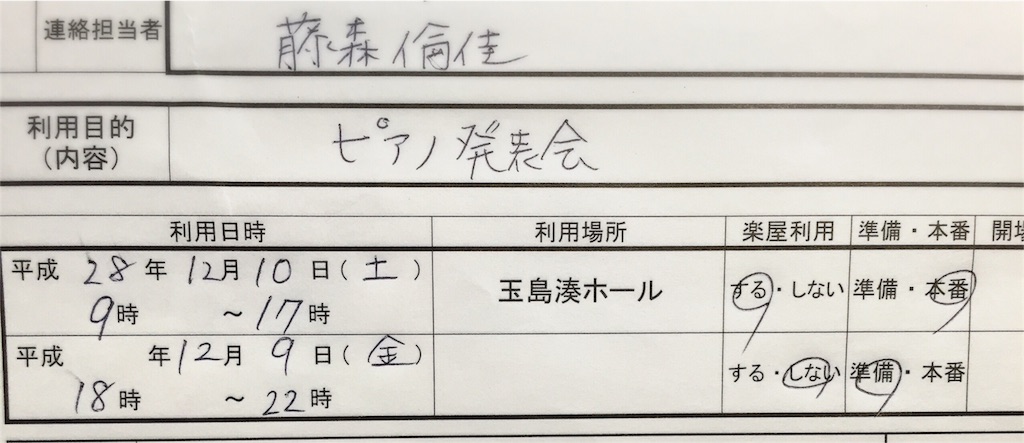 連絡担当者 藤森倫佳
利用目的 ピアノ発表会
(内容)
利用日時 利用場所 楽屋利用 準備・本番 開場
平成 28年 12月 10日(土) 玉島湊ホール する・しない 準備・本番
9時 ~17時
平成 年 12月 9日(金) する・しない 準備・本番
18時 ~22時